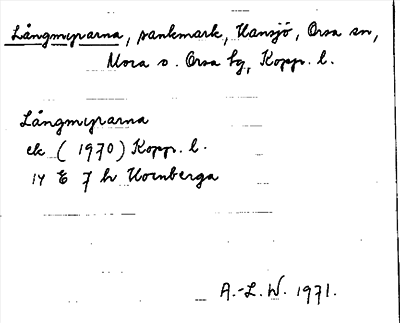 Långmyrarna, sankmark, Hansjö, Orsa sn,
Mora o. Orsa tg, Kopp. l.
Långmyrarna
ek (1970) Kopp. l.
14 E 7 h Hornberga
A.-L. W. 1971.